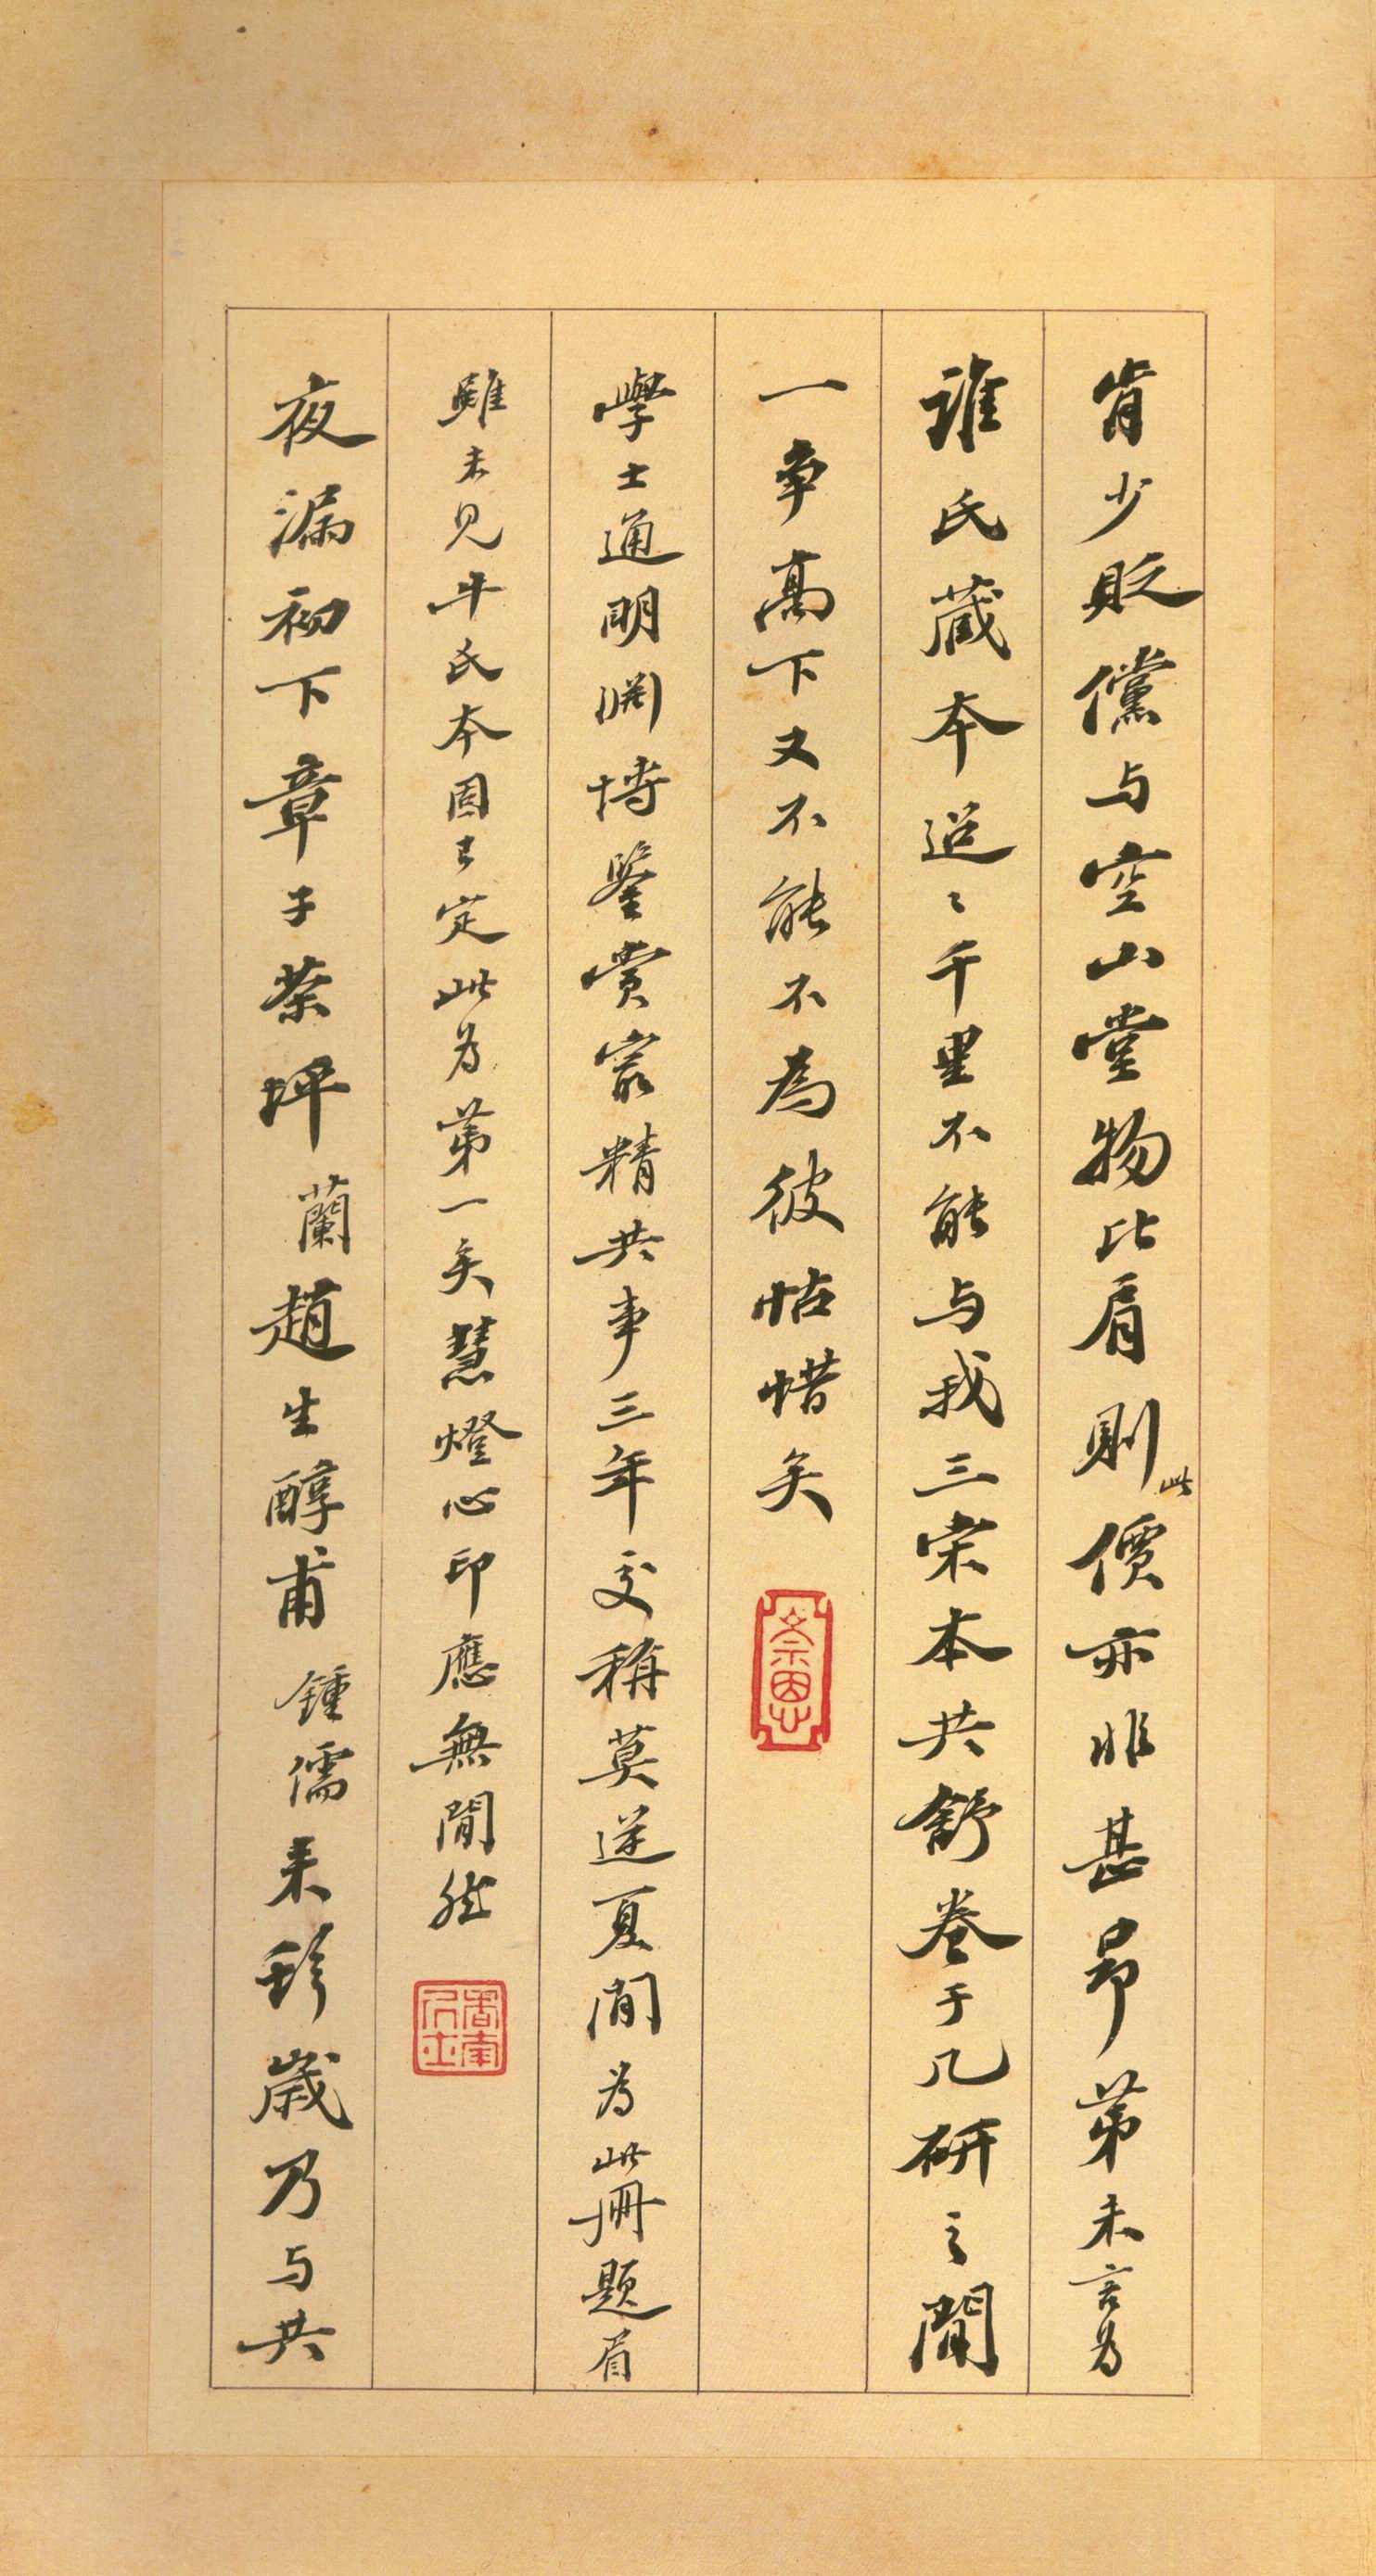 肯少貶儻与空山堂物比肩則此價亦非甚昂第未言為
誰氏藏本迢〻千里不能与我三宋本共舒卷于几研之間
一爭高下又不能不為彼帖惜矣
崇恩
學士通明渊博鑒賞㝡精共事三年交稱莫逆夏間為此冊題眉
雖未見牛氏本固已定此為第一矣慧燈心印應無閒然
香南居士
夜漏初下章子荼坪蘭趙生醇甫鍾儒来貯歲乃与共